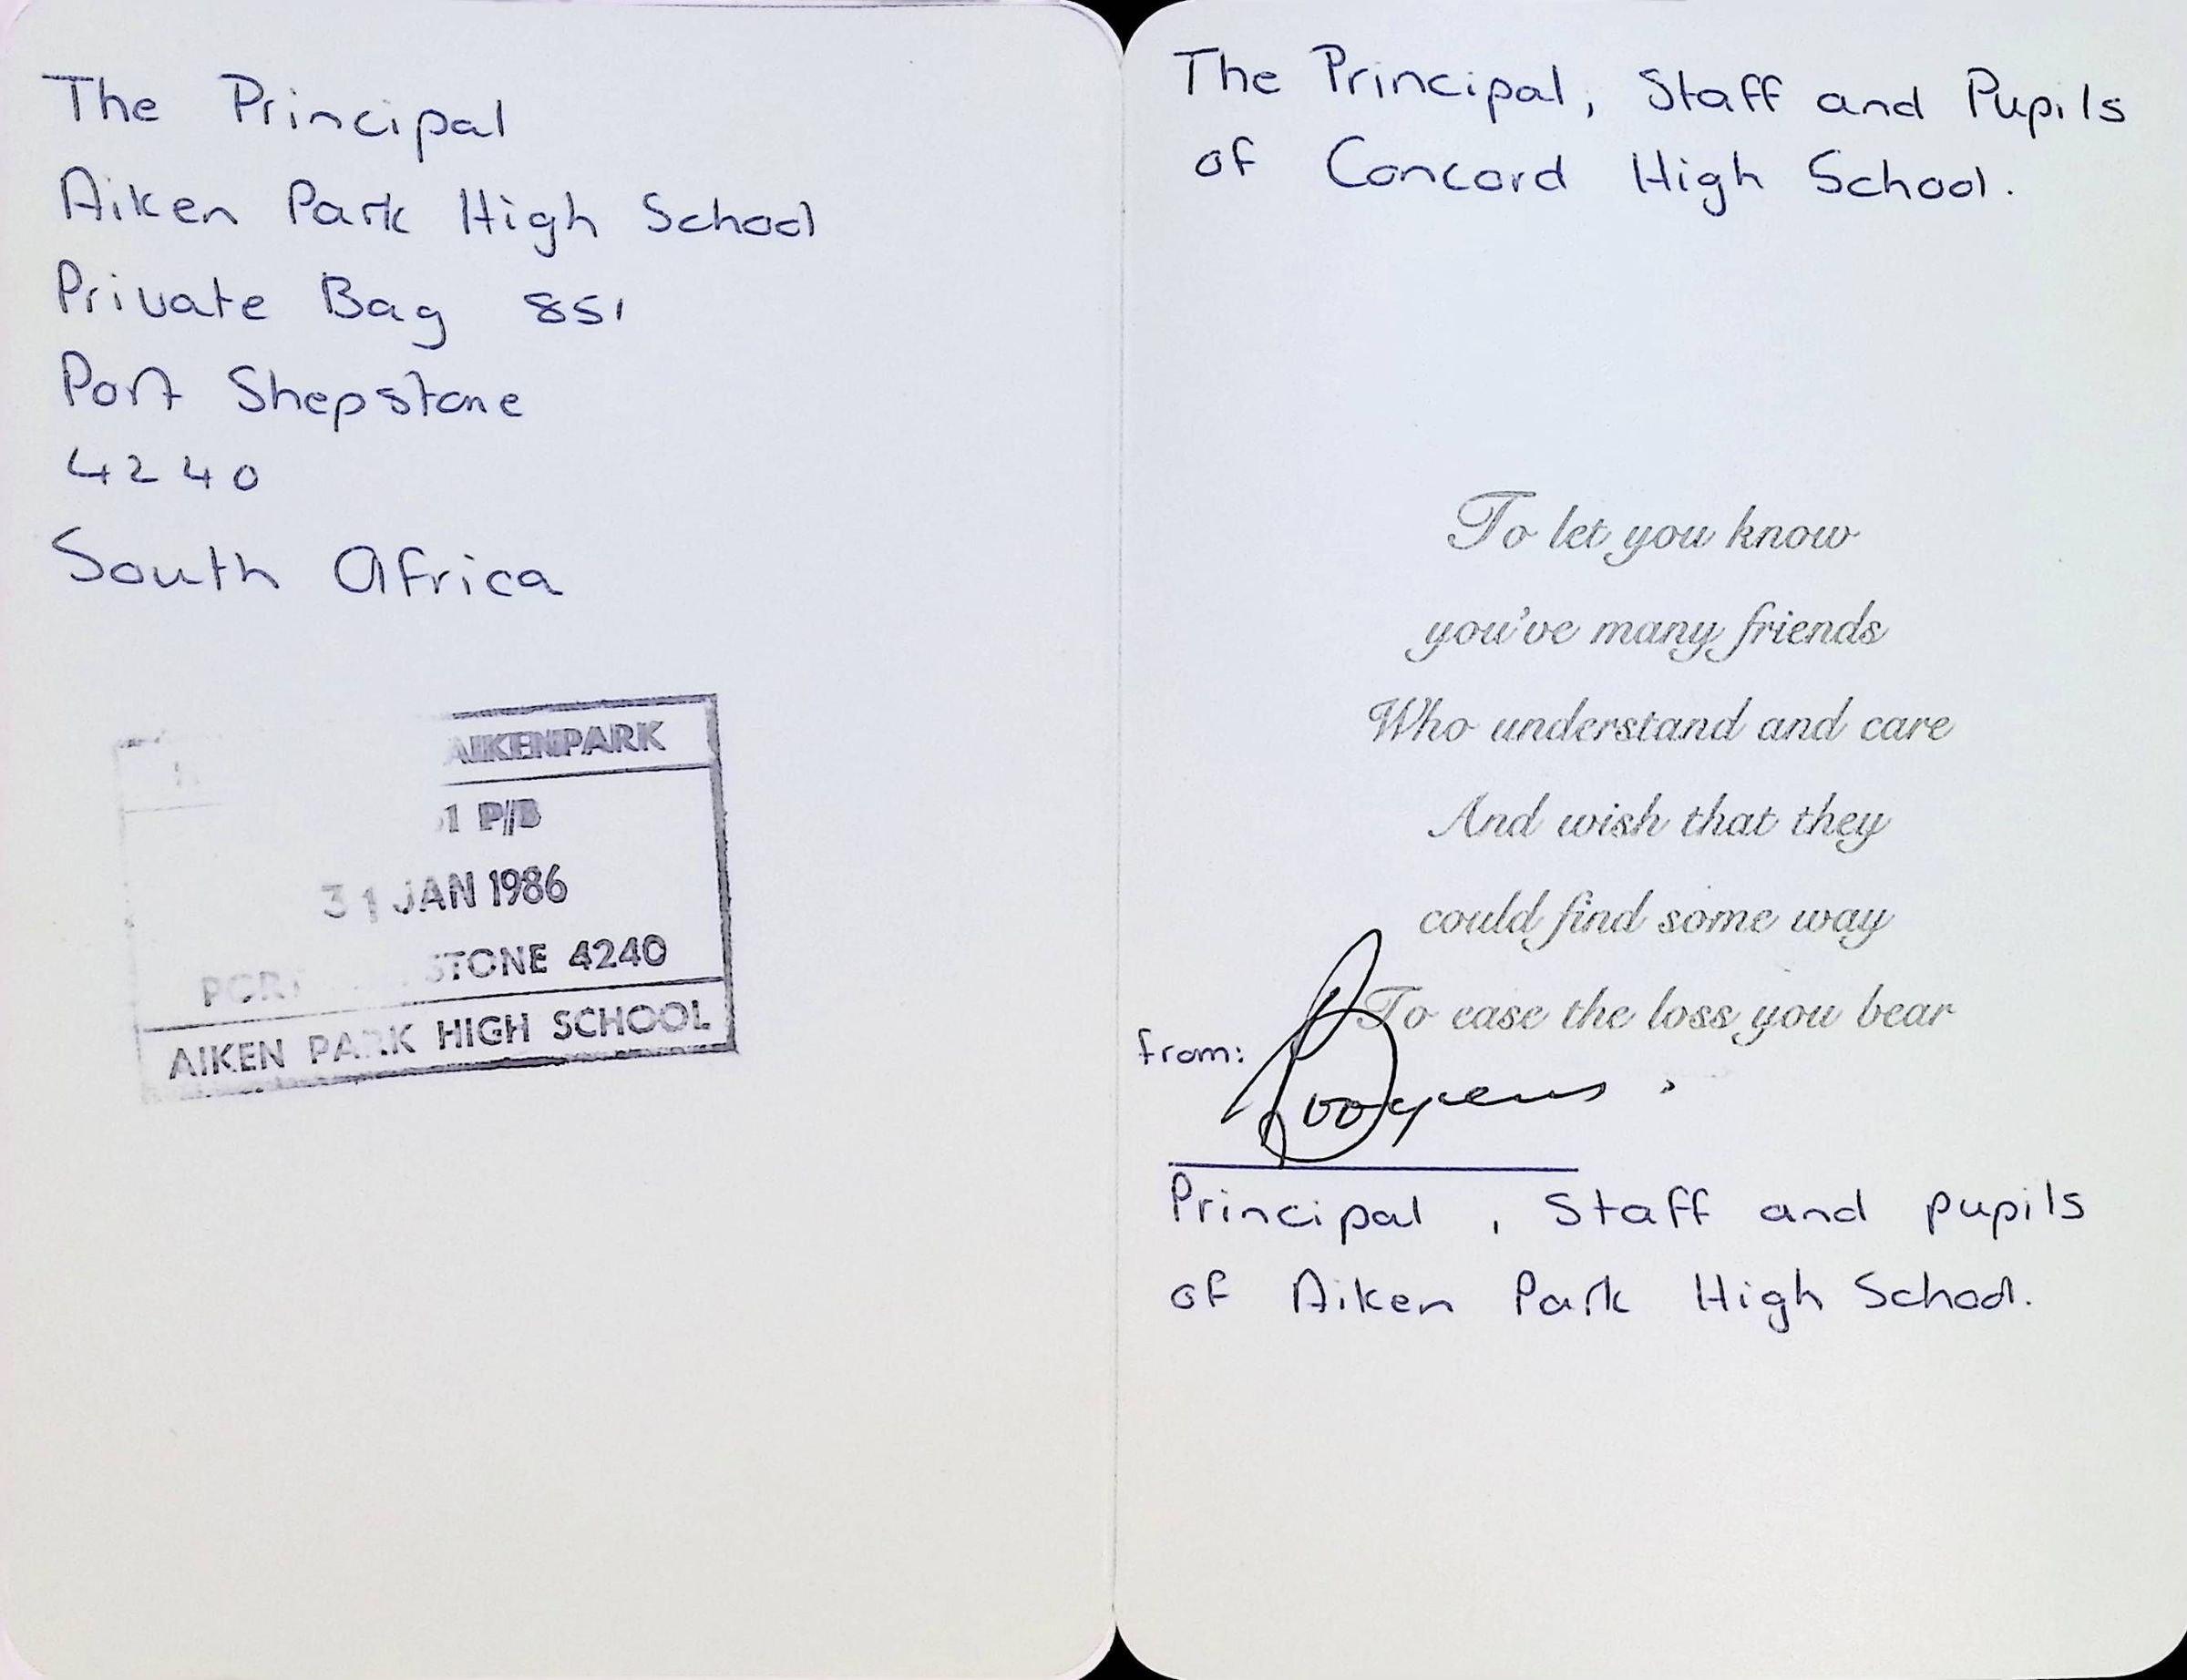 The Principal
Aiken Park High School
Private Bag 851
Port Shepstone
4240
South Africa
AIKENPARK
1 P/B
31 JAN 1986
PORT STONE 4240
AIKEN PARK HIGH SCHOOL
The Principal, Staff and Pupils
of Concord High School.
To let you know
you've many friends
Who understand and care
And wish that they
could find some way
To ease the loss you bear
from:
Principal, Staff and pupils
of Aiken Park High School.